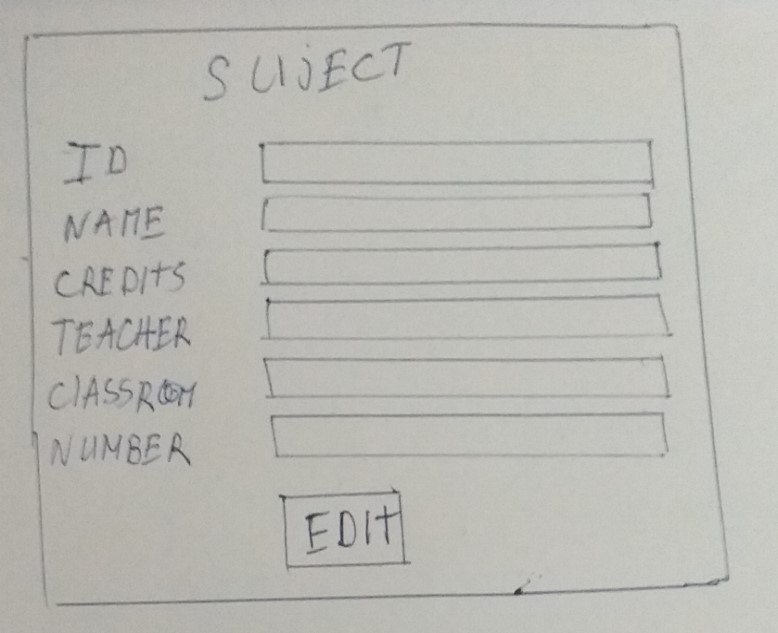 SUJECT
ID
NAME
CREDITS
TEACHER
ClASSROOM
NUMBER
EDIT